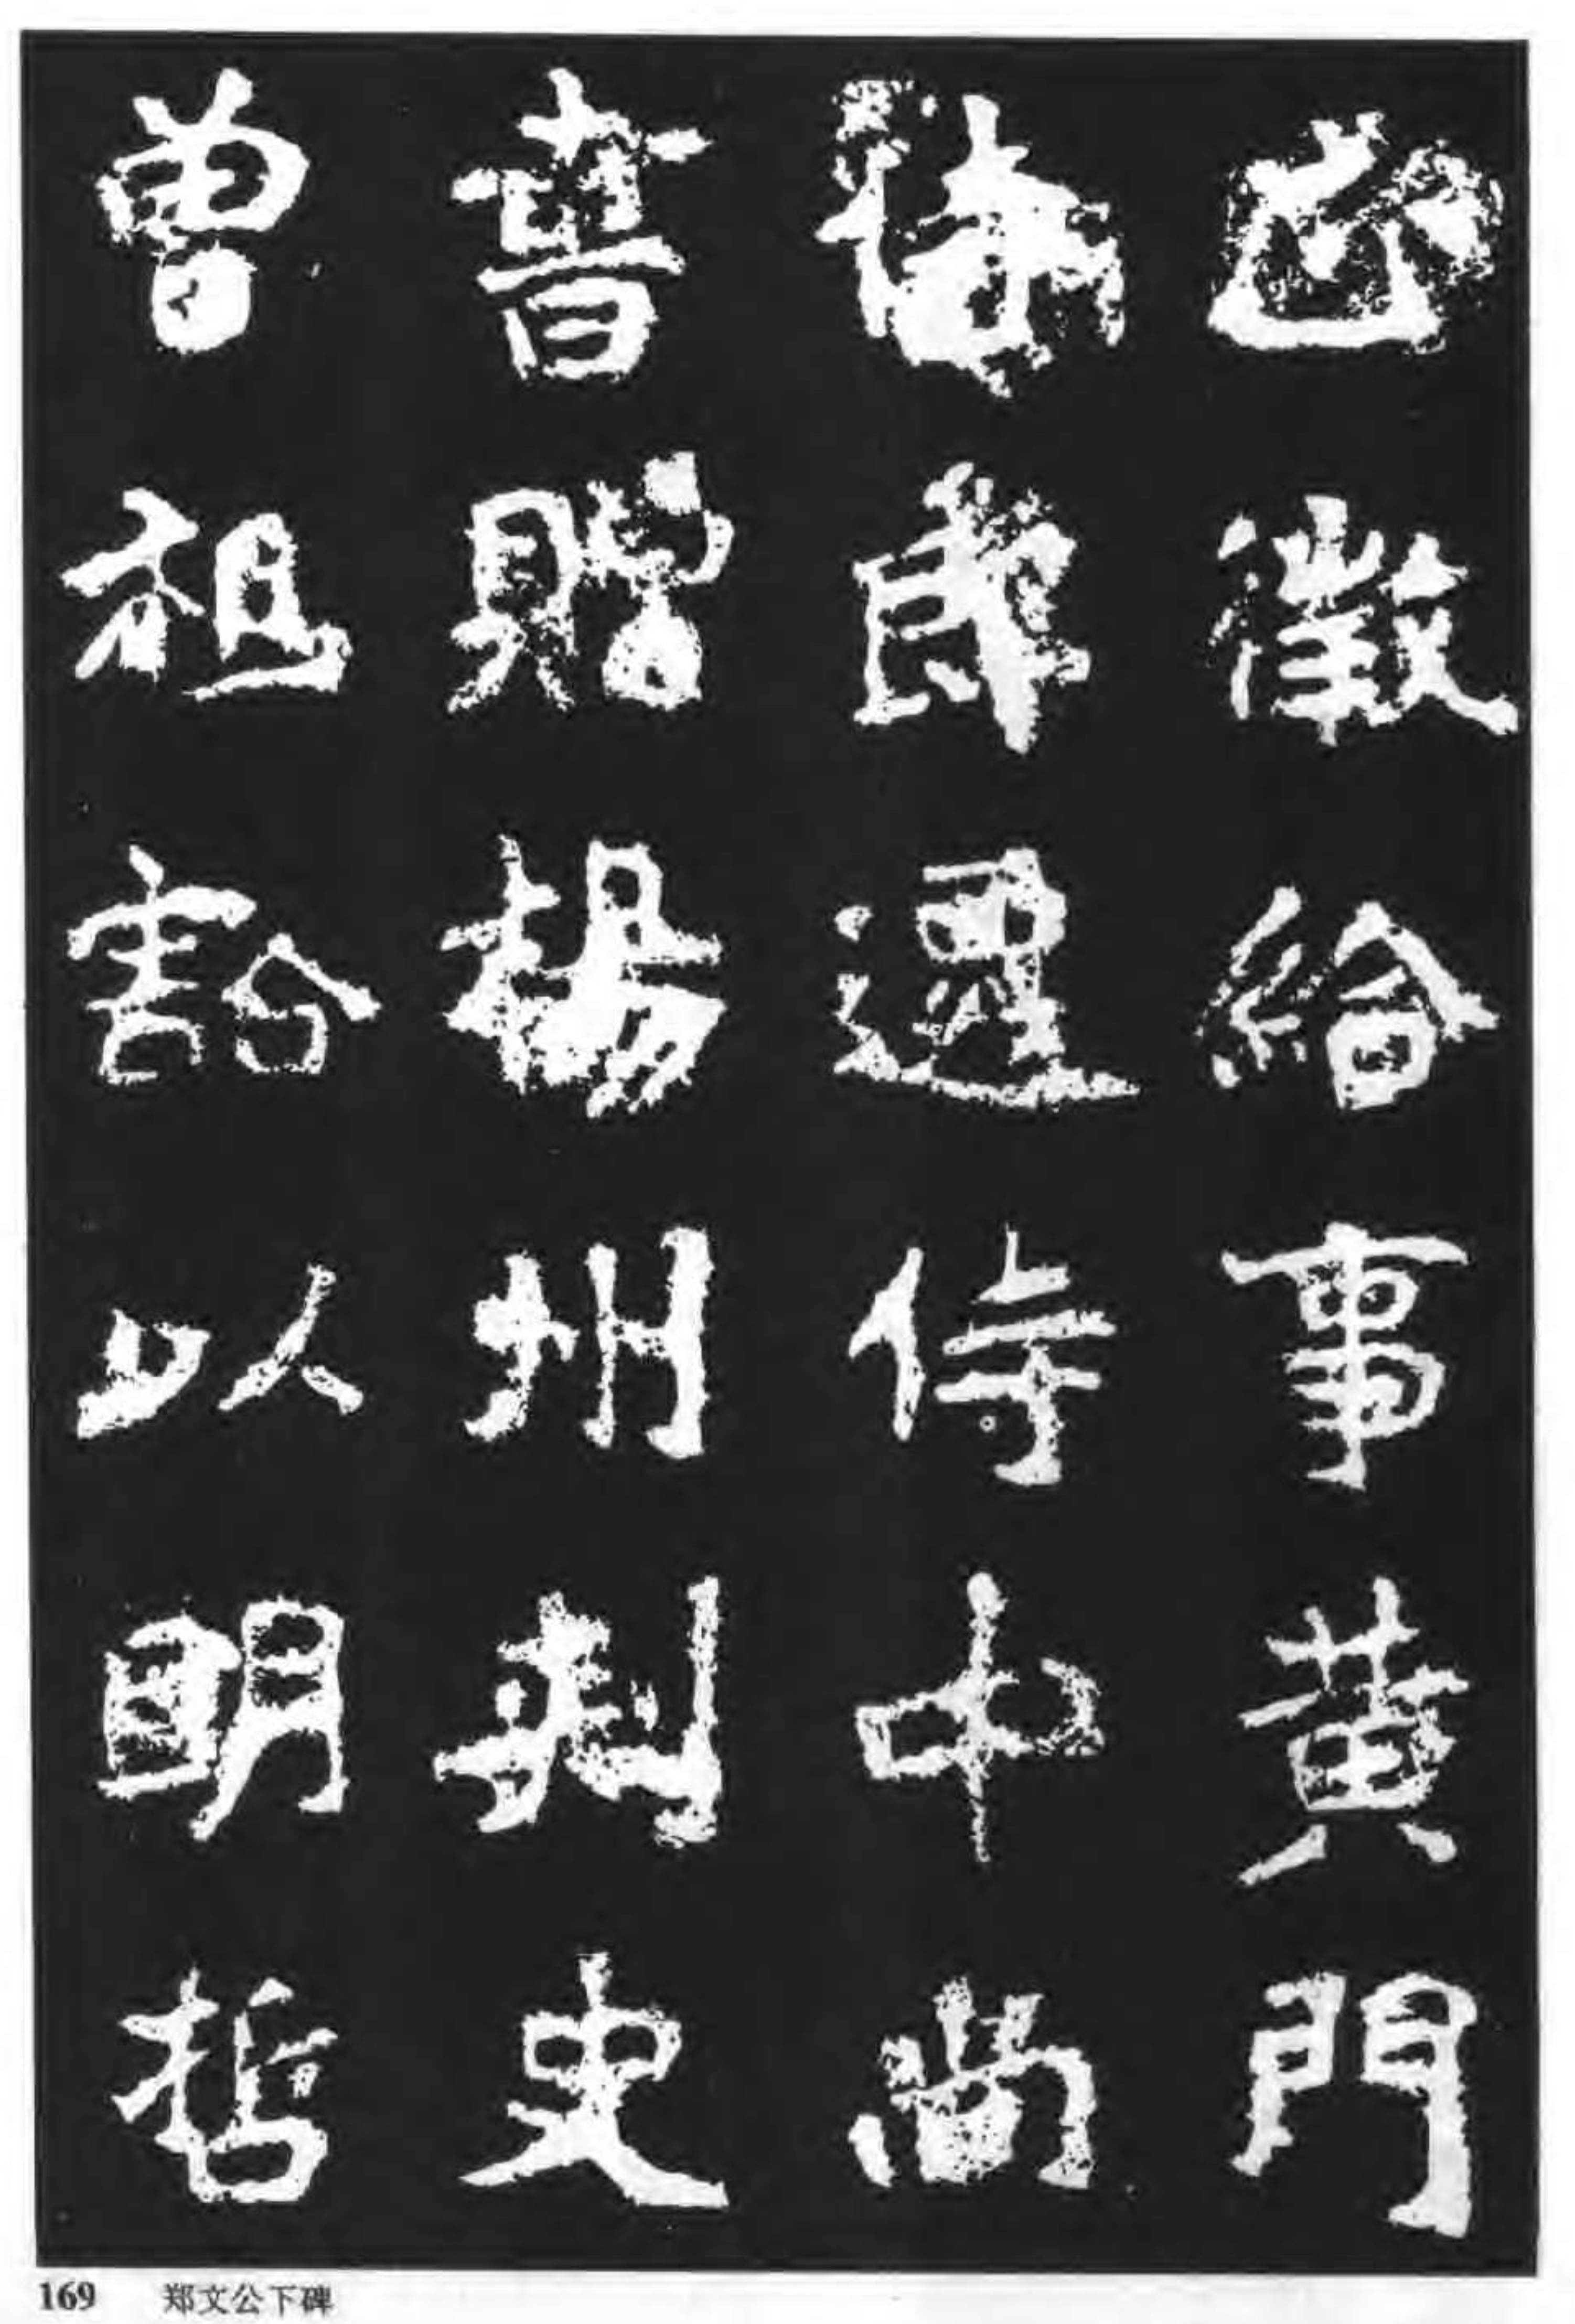 匝徵給事黃門
侍郎遷侍中尚
書贈揚州刺史
曾祖豁以明哲
169 郑文公下碑